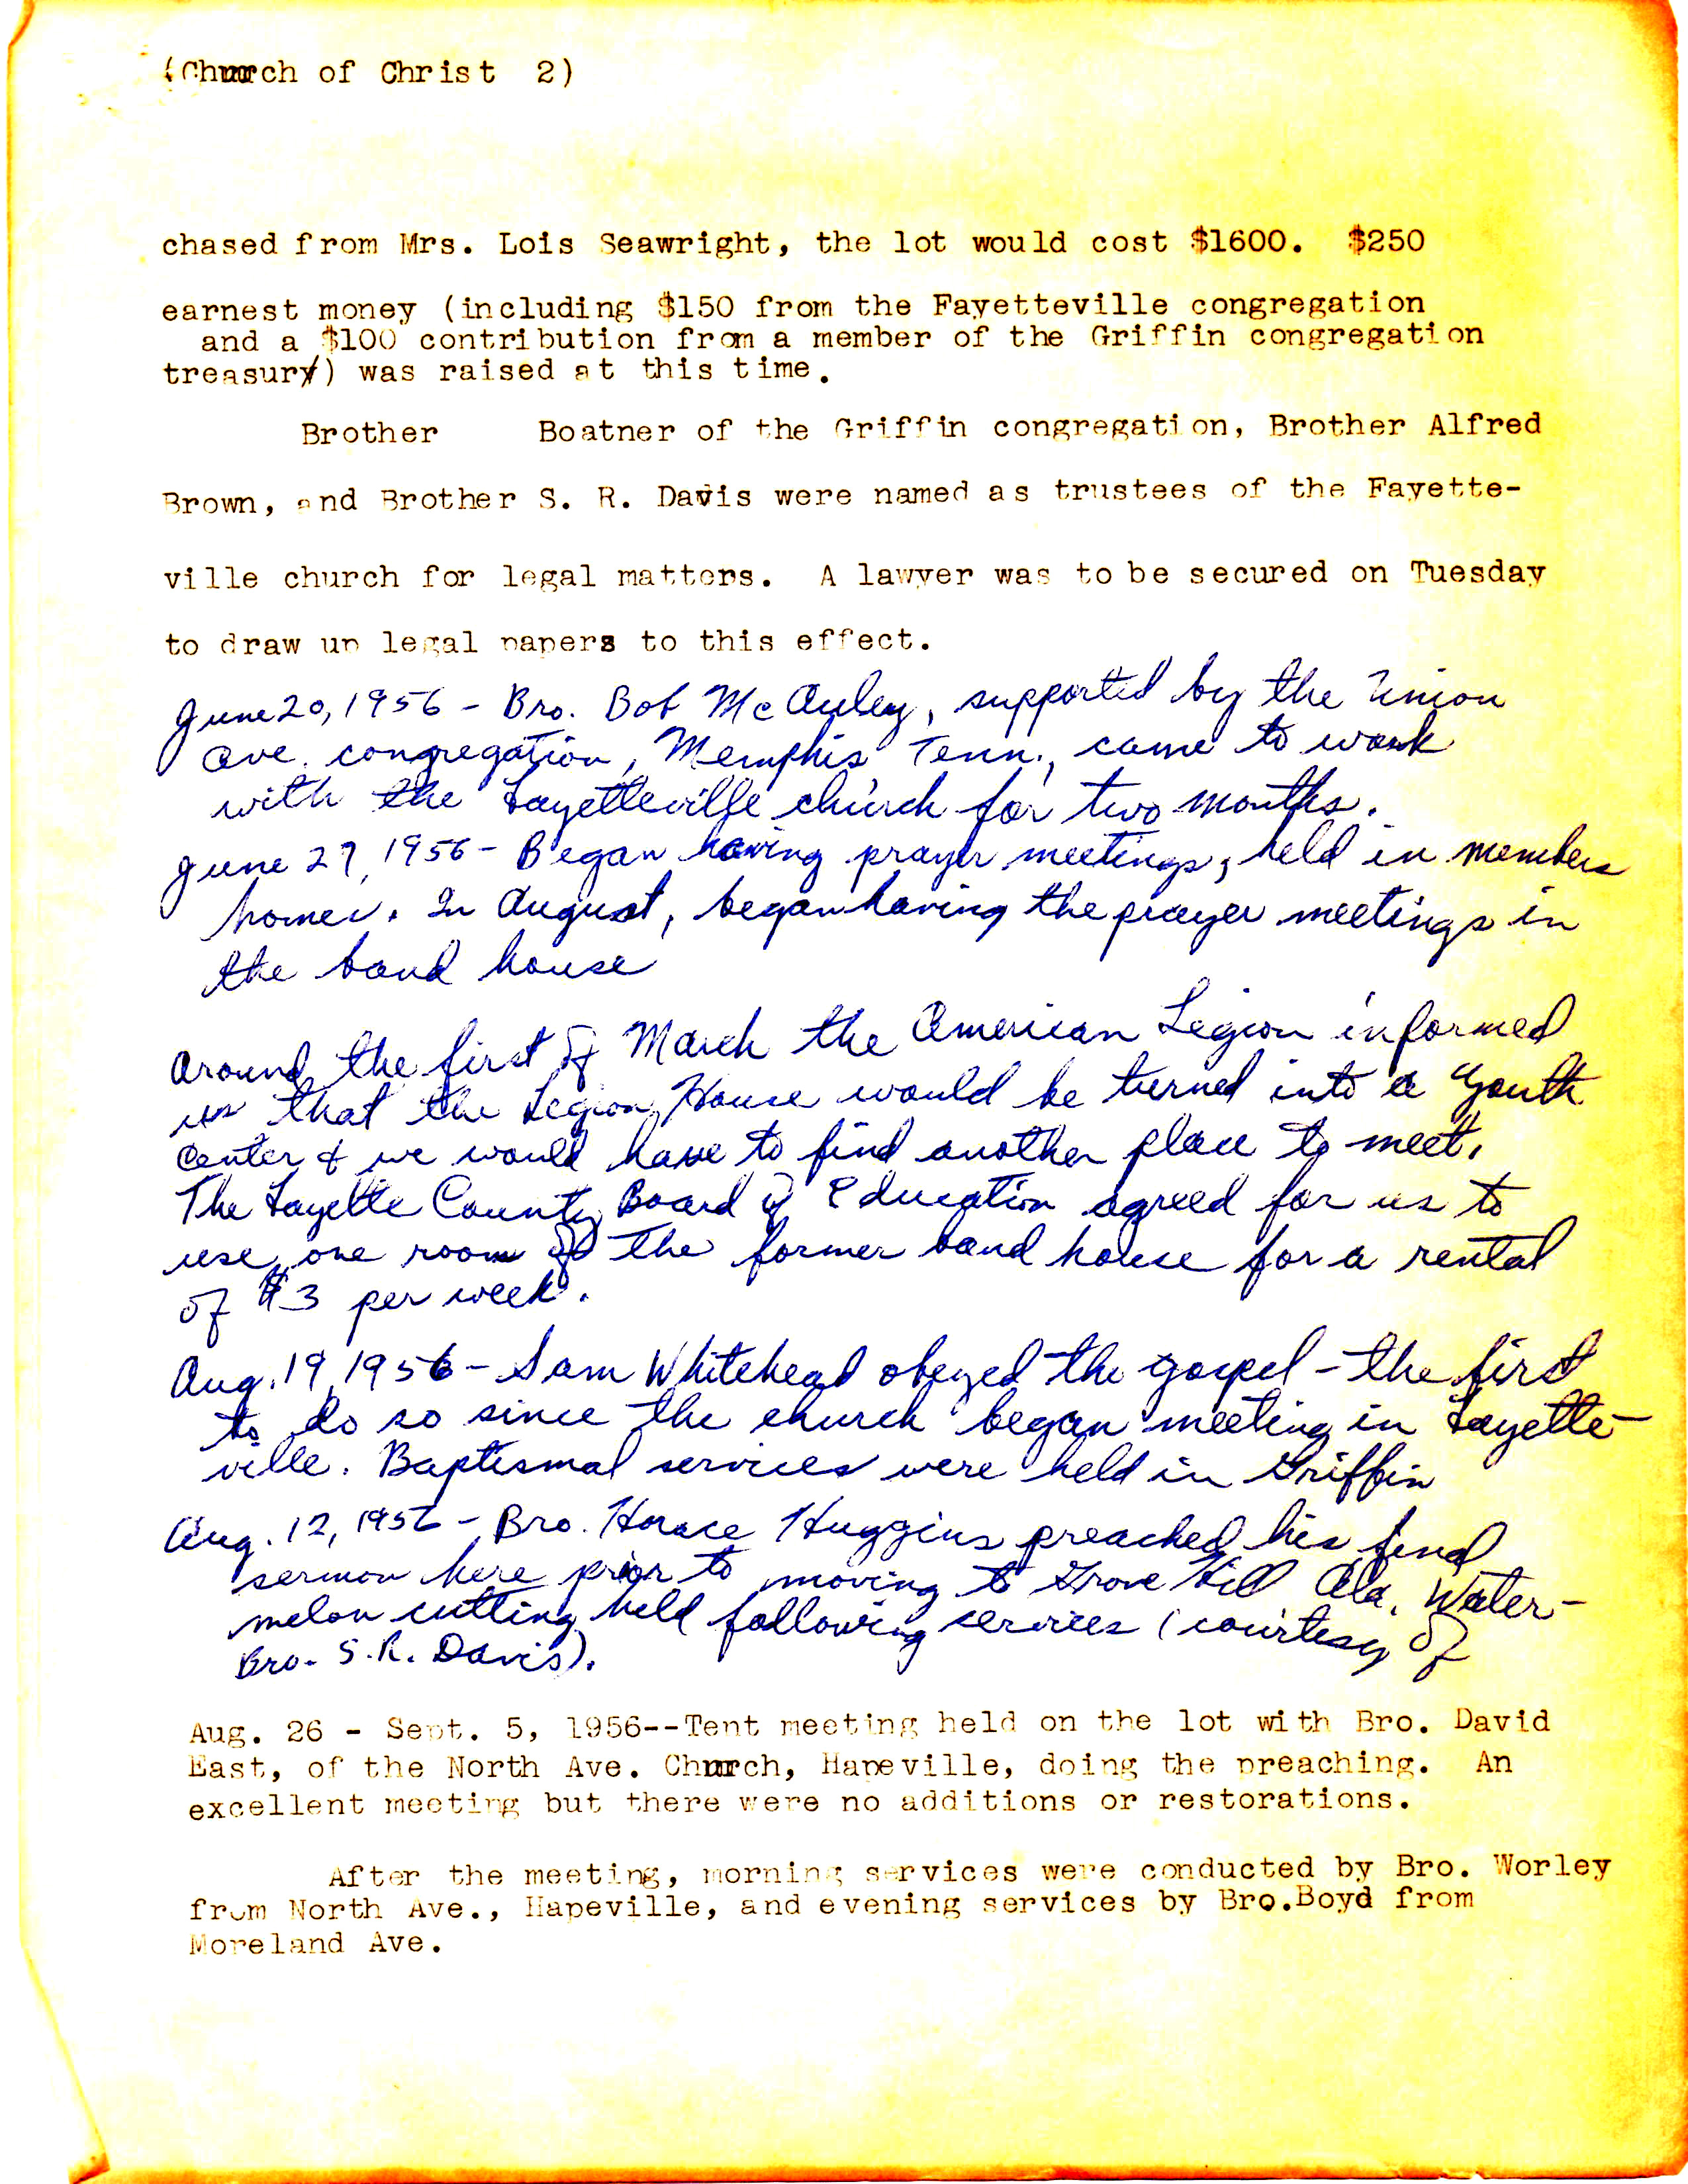 (Church of Christ 2)
chased from Mrs. Lois Seawright, the lot would cost $1600. $250
earnest money (including $150 from the Fayetteville congregation
and a $100 contribution from a member of the Griffin congregation
treasury) was raised at this time.
Brother Boatner of the Griffin congregation, Brother Alfred
Brown, and Brother S. R. Davis were named as trustees of the Fayette-
ville church for legal matters. A lawyer was to be secured on Tuesday
to draw up legal papers to this effect.
June 20, 1956 - Bro. Bob McAuley, supported by the Union
Ave. congregation, Memphis Tenn., came to work
with the Fayetteville church for two months.
June 27, 1956 - Began having prayer meetings, held in members
homes. In August, began having the prayer meetings in
the band house
Around the first of March the American Legion informed
us that the Legion House would be turned into a Youth
Center & we would have to find another place to meet.
The Fayette County Board of Education agreed for us to
use one room of the former band house for a rental
of $3 per week.
Aug. 19, 1956 - Sam Whitehead obeyed the gospel - the first
to do so since the church began meeting in Fayette-
ville. Baptismal services were held in Griffin
Aug. 12, 1956 - Bro. Horace Huggins preached his final
sermon here prior to moving to Grove Hill Ala. Water-
melon cutting held following services (courtesy of
Bro. S.R. Davis).
Aug. 26 - Sept. 5, 1956--Tent meeting held on the lot with Bro. David
East, of the North Ave. Church, Hapeville, doing the preaching. An
excellent meeting but there were no additions or restorations.
After the meeting, morning services were conducted by Bro. Worley
from North Ave., Hapeville, and evening services by Bro.Boyd from
Moreland Ave.